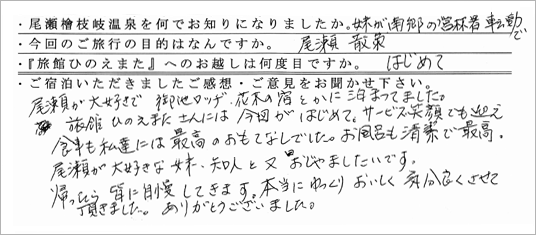 ・尾瀬檜枝岐温泉を何でお知りになりましたか。妹が南郷の営林署転勤で
・今回のご旅行の目的はなんですか。 尾瀬 散策
・『旅館ひのえまた』へのお越しは何度目ですか。 はじめて
・ご宿泊いただきましたご感想・ご意見をお聞かせ下さい。
尾瀬が大好きで 御池ロッヂ、花木の宿とかに泊まってました。
旅館ひのえまたさんには今回がはじめて。サービス笑顔でも迎え
食事も私達には最高のおもてなしでした。お風呂も清潔で最高。
尾瀬が大好きな妹、知人と又おじゃましたいです。
帰ったら皆に自慢してきます。本当にゆっくりおいしく気分良くさせて
頂きました。ありがとうございました。